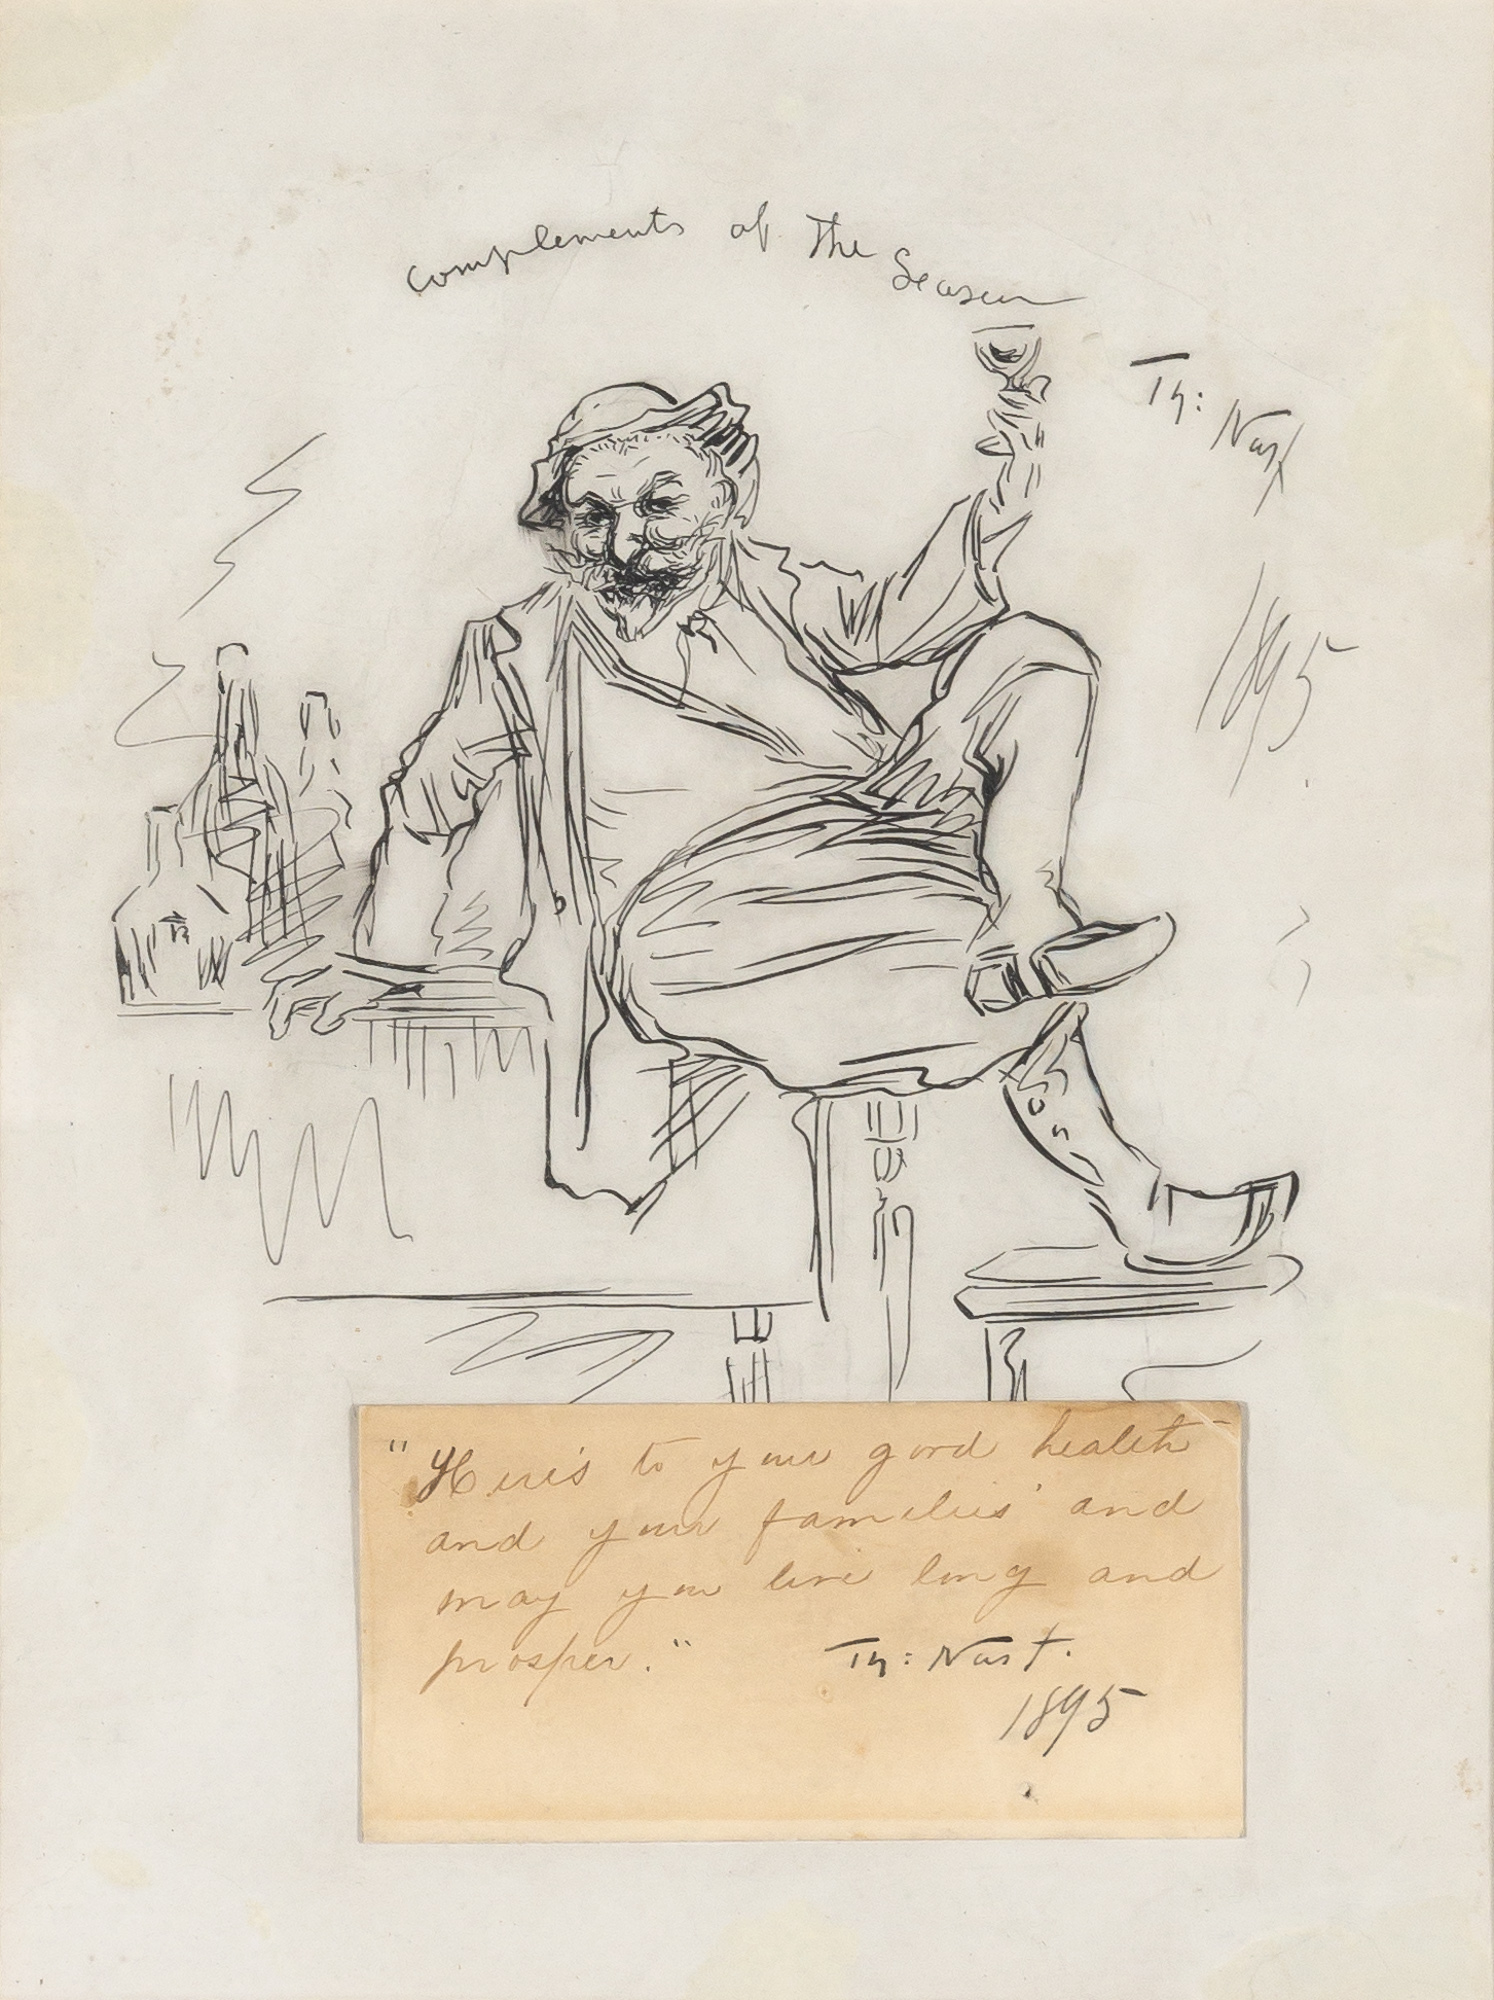 complements of The Season
Th: Nast
1895
"Here's to your good health
and your families' and
may you live long and
prosper."
Th: Nast.
1895